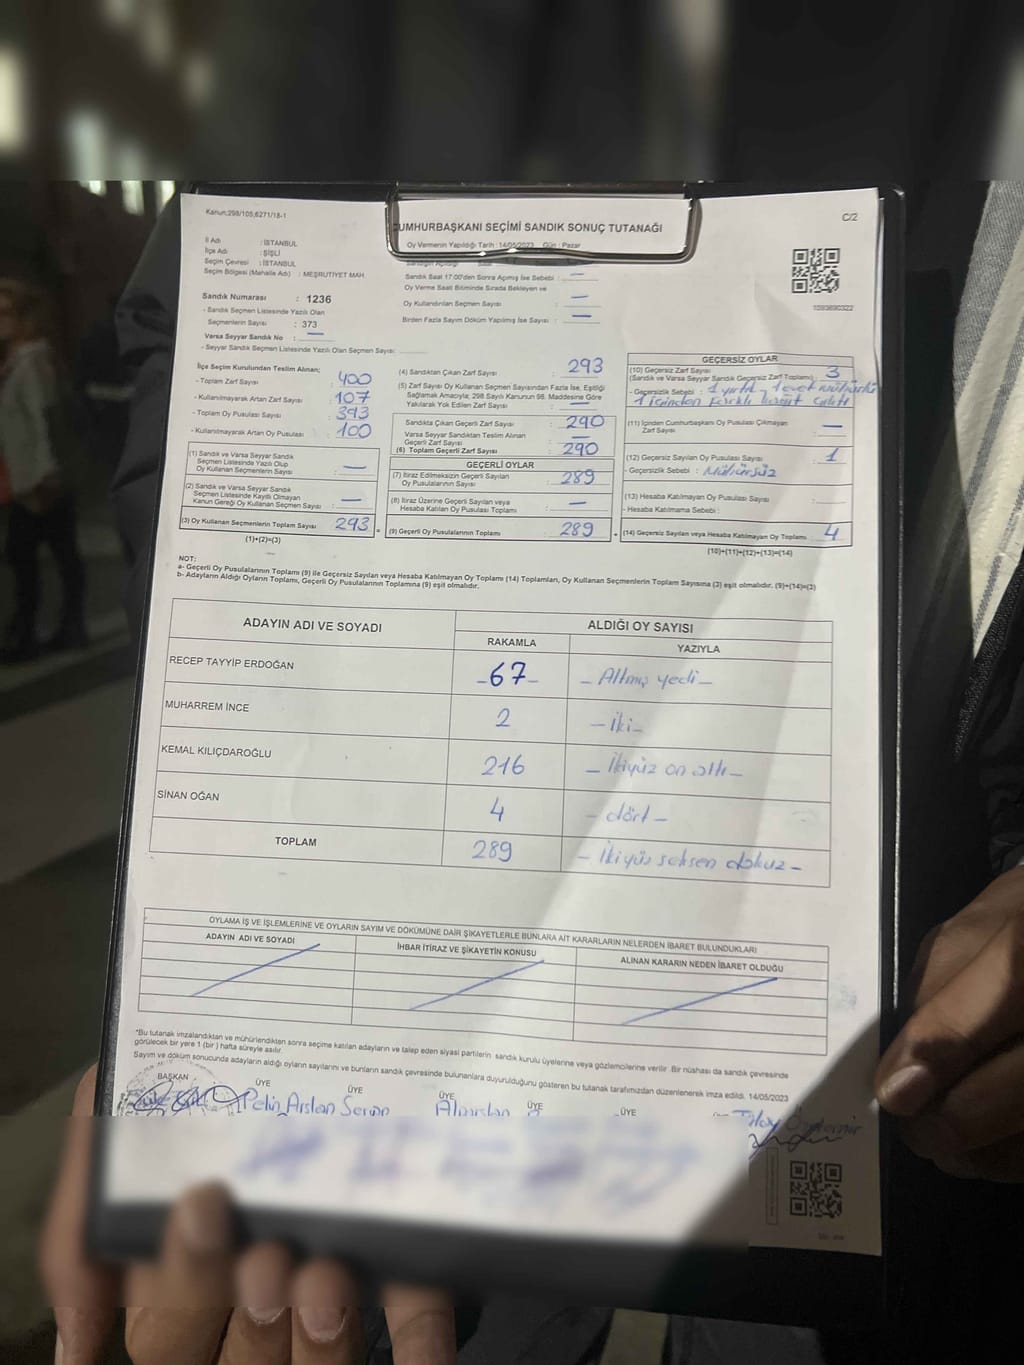 Kanun:298/105,6271/18-1
C/2
CUMHURBAŞKANI SEÇİMİ SANDIK SONUÇ TUTANAĞI
Oy Vermenin Yapıldığı Tarih : 14/05/2023 Gün : Pazar
İl Adı : İSTANBUL
İlçe Adı : ŞİŞLİ
Seçim Çevresi : İSTANBUL
Seçim Bölgesi (Mahalle Adı) : MEŞRUTİYET MAH
Sandık Numarası : 1236
- Sandık Seçmen Listesinde Yazılı Olan
Seçmenlerin Sayısı : 373
Varsa Seyyar Sandık No : —
- Seyyar Sandık Seçmen Listesinde Yazılı Olan Seçmen Sayısı:
Sandık Saat 17:00'den Sonra Açımış İse Sebebi : —
Oy Verme Saati Bitiminde Sırada Bekleyen ve
Oy Kullandırılan Seçmen Sayısı : —
Birden Fazla Sayım Döküm Yapılmış İse Sayısı : —
1593690322
İlçe Seçim Kurulundan Teslim Alınan;
- Toplam Zarf Sayısı : 400
- Kullanılmayarak Artan Zarf Sayısı : 107
- Toplam Oy Pusulası Sayısı : 393
- Kullanılmayarak Artan Oy Pusulası : 100
(1) Sandık ve Varsa Seyyar Sandık
Seçmen Listesinde Yazılı Olup
Oy Kullanan Seçmenlerin Sayısı : —
(2) Sandık ve Varsa Seyyar Sandık
Seçmen Listesinde Kayıtlı Olmayan
Kanun Gereği Oy Kullanan Seçmen Sayısı : —
(3) Oy Kullanan Seçmenlerin Toplam Sayısı : 293
(1)+(2)=(3)
(4) Sandıktan Çıkan Zarf Sayısı : 293
(5) Zarf Sayısı Oy Kullanan Seçmen Sayısından Fazla İse, Eşitliği
Sağlamak Amacıyla; 298 Sayılı Kanunun 98. Maddesine Göre
Yakılarak Yok Edilen Zarf Sayısı : —
Sandıkta Çıkan Geçerli Zarf Sayısı : 290
Varsa Seyyar Sandıktan Teslim Alınan
Geçerli Zarf Sayısı : —
(6) Toplam Geçerli Zarf Sayısı : 290
GEÇERLİ OYLAR
(7) İtiraz Edilmeksizin Geçerli Sayılan
Oy Pusulalarının Sayısı : 289
(8) İtiraz Üzerine Geçerli Sayılan veya
Hesaba Katılan Oy Pusulası Toplamı : —
(9) Geçerli Oy Pusulalarının Toplamı : 289
GEÇERSİZ OYLAR
(10) Geçersiz Zarf Sayısı : 3
(Sandık ve Varsa Seyyar Sandık Geçersiz Zarf Toplamı)
- Geçersizlik Sebebi : 1 yırtık, 1 evet mühürlü
1 içinden farklı kağıt çıktı
(11) İçinden Cumhurbaşkanı Oy Pusulası Çıkmayan
Zarf Sayısı : —
(12) Geçersiz Sayılan Oy Pusulası Sayısı : 1
- Geçersizlik Sebebi : Mühürsüz
(13) Hesaba Katılmayan Oy Pusulası Sayısı :
- Hesaba Katılmama Sebebi :
(14) Geçersiz Sayılan veya Hesaba Katılmayan Oy Toplamı : 4
(10)+(11)+(12)+(13)=(14)
NOT:
a- Geçerli Oy Pusulalarının Toplamı (9) ile Geçersiz Sayılan veya Hesaba Katılmayan Oy Toplamı (14) Toplamları, Oy Kullanan Seçmenlerin Toplam Sayısına (3) eşit olmalıdır. (9)+(14)=(3)
b- Adayların Aldığı Oyların Toplamı, Geçerli Oy Pusulalarının Toplamına (9) eşit olmalıdır.
ADAYIN ADI VE SOYADI
ALDIĞI OY SAYISI
RAKAMLA
YAZIYLA
RECEP TAYYİP ERDOĞAN -67- - Altmış yedi -
MUHARREM İNCE 2 - İki -
KEMAL KILIÇDAROĞLU 216 - İkiyüz on altı -
SİNAN OĞAN 4 - dört -
TOPLAM 289 - İkiyüz seksen dokuz -
OYLAMA İŞ VE İŞLEMLERİNE VE OYLARIN SAYIM VE DÖKÜMÜNE DAİR ŞİKAYETLERLE BUNLARA AİT KARARLARIN NELERDEN İBARET BULUNDUKLARI
ADAYIN ADI VE SOYADI
İHBAR İTİRAZ VE ŞİKAYETİN KONUSU
ALINAN KARARIN NEDEN İBARET OLDUĞU
*Bu tutanak imzalandıktan ve mühürlendikten sonra seçime katılan adayların ve talep eden siyasi partilerin sandık kurulu üyelerine veya gözlemcilerine verilir. Bir nüshası da sandık çevresinde
görülecek bir yere 1 (bir) hafta süreyle asılır.
Sayım ve döküm sonucunda adayların aldığı oyların sayılarını ve bunların sandık çevresinde bulunanlara duyurulduğunu gösteren bu tutanak tarafımızdan düzenlenerek imza edildi. 14/05/2023
BAŞKAN ÜYE ÜYE ÜYE ÜYE ÜYE
Pelin Arslan